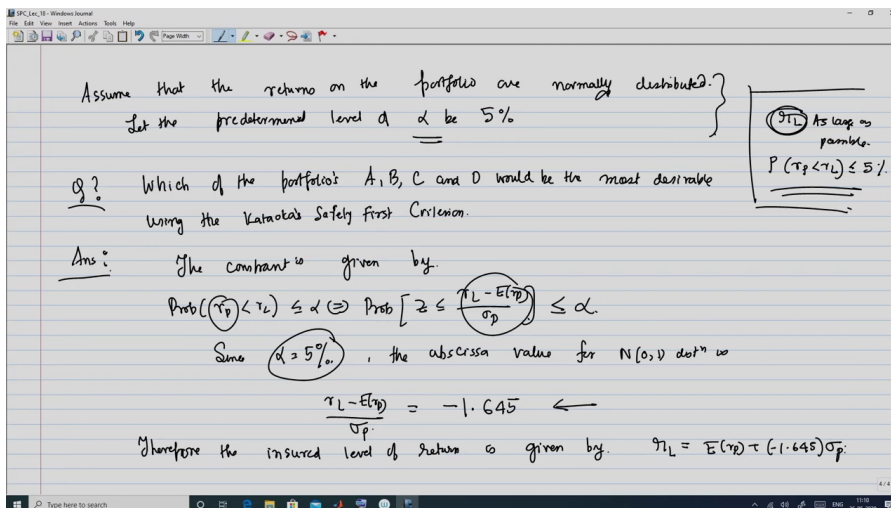 SPC_Lec_18 - Windows Journal
File Edit View Insert Actions Tools Help
Page Width
Assume that the returns on the portfolio are normally distributed.
Let the predetermined level of α be 5%
r_L As large as possible.
P(r_P < r_L) ≤ 5%
Q? Which of the portfolio's A, B, C and D would be the most desirable
using the Kataoka's Safety First Criterion.
Ans: The constraint is given by.
Prob(r_P < r_L) ≤ α ⇔ Prob[Z ≤ (r_L - E(r_P))/σ_P] ≤ α.
Since α = 5%, the abscissa value for N(0,1) distⁿ is
(r_L - E(r_P))/σ_P = -1.645 ←
Therefore the insured level of return is given by. r_L = E(r_P) + (-1.645)σ_P.
4 / 4
Type here to search
ENG
11:10